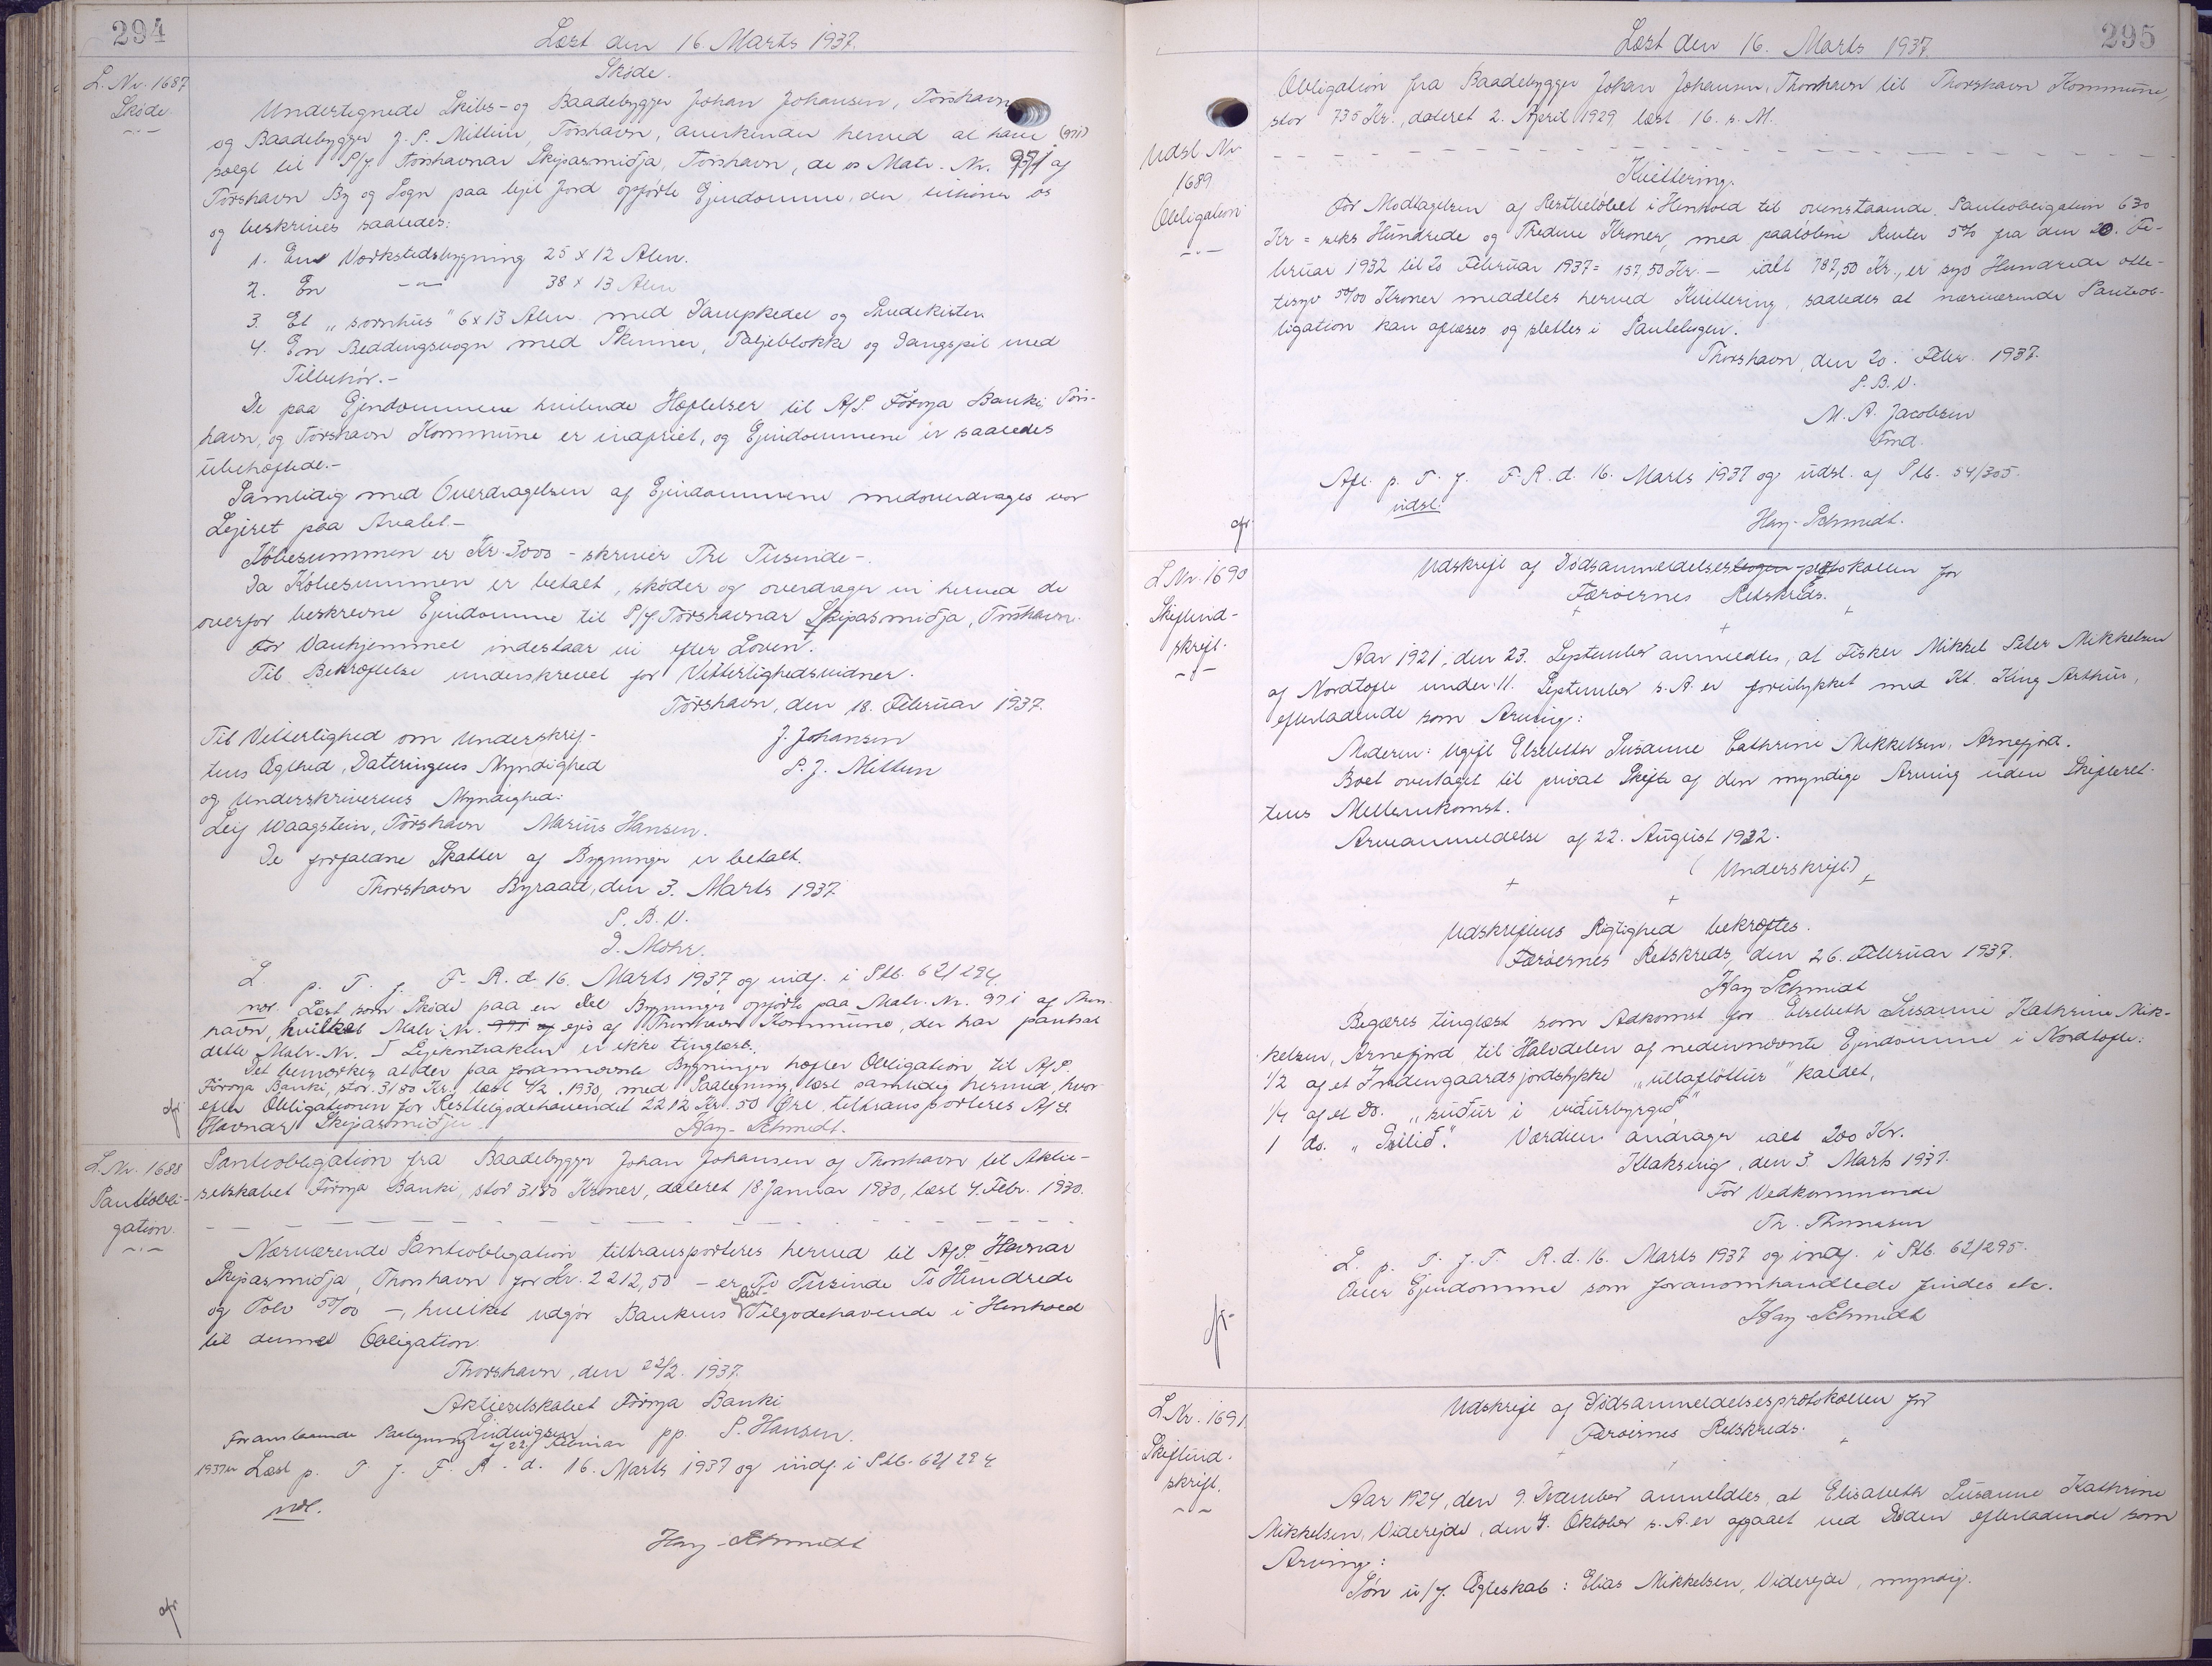 294
Læst den 16. Marts 1937.
L. Nr. 1687
Skøde.
Skøde.
Undertegnede Skibs- og Baadebygger Johan Johansen, Tórshavn
og Baadebygger J. P. Mittún, Tórshavn, anerkender herved at have (971)
solgt til P/f Tórshavnar Skipasmiðja, Tórshavn, de os Matr. Nr. 971 af
Tórshavn By og Sogn paa lejet Jord opførte Ejendomme, der tilhører os
og beskrives saaledes:
1. En Værkstedsbygning 25 x 12 Alen.
2. En -"- 38 x 13 Alen
3. Et "sornhús" 6x13 Alen med Dampkedel og
4. En Beddingsvogn med Skinner, Taljeblokke og Gangspil med
Tilbehør.-
De paa Ejendommene hvilende Hæftelser til A/S. Føroya Banki, Tórs-
havn, og Tórshavn Kommune er indfriet, og Ejendommene er saaledes
ubehæftede.-
Samtidig med Overdragelsen af Ejendommene medoverdrages vor
Lejeret paa Arealet.-
Købesummen er Kr. 3000 - skriver Tre Tusinde -.
Da Købesummen er betalt, skøder og overdrager vi herved de
overfor beskrevne Ejendomme til P/f Tórshavnar Skipasmiðja, Tórshavn.
For Vanhjemmel indestaar vi efter Loven.
Til Bekræftelse underskrevet for Vitterlighedsvidner.
Tórshavn, den 18. Februar 1937.
Til Vitterlighed om Underskrif- J. Johansen
tens Ægthed, Dateringens Myndighed P. J. Mittun
og Underskriverens Myndighed:
Leif Waagstein, Tórshavn Marius Hansen.
De forfaldne Skatter af Bygninger er betalt.
Thorshavn Byraad, den 3. Marts 1937.
P. B. V.
J. Mohr.
L p. T. f. F. R. d. 16. Marts 1937 og indf. i Ptb. 62/294.
Læst som Skøde paa en Del Bygninger opførte paa Matr. Nr. 971 af Thors-
havn, hvilket Matr. Nr. 971 af ejes af Thorshavn Kommune, der har pantsat
dette Matr.-Nr. Lejekontrakten er ikke tinglæst.
Det bemærkes, at der paa forannævnte Bygninger hæfter Obligation til A/S.
Føroya Banki, stor 3180 Kr. læst 4/2. 1930, med Paategning, læst samtidig hermed, hvor-
efter Obligationen for Resttilgodehavendet 2212 Kr. 50 Øre tiltransporteres A/S.
Havnar Skipasmiðju
Hay-Schmidt.
afr.
L. Nr. 1688
Pantobli-
gation.
Pantobligation fra Baadebygger Johan Johansen af Thorshavn til Aktie-
selskabet Føroya Banki, stor 3180 Kroner, dateret 18. Januar 1930, læst 4. Febr. 1930.
Nærværende Pantobligation tiltransporteres herved til A/S. Havnar
Skipasmiðja, Thorshavn for Kr. 2212,50 - er To Tusinde To Hundrede
og Tolv 50/00 -, hvilket udgør Bankens Rest-Tilgodehavende i Henhold
til denne Obligation.
Thorshavn, den 22/2. 1937.
Aktieselskabet Føroya Banki
pp. P. Hansen.
Foranstaaende Paategning af 22/ Februar
1937 er Læst p. T. f. F. R. d. 16. Marts 1937 og indf. i Ptb. 62/294
Hay-Schmidt
afr.
295
Læst den 16. Marts 1937.
Udsl. Nr.
1689
Obligation
Obligation fra Baadebygger Johan Johansen, Thorshavn til Thorshavn Kommune,
stor 735 Kr., dateret 2. April 1929 læst 16. s. M.
Kvittering.
For Modtagelsen af Restbeløbet i Henhold til ovenstaaende Pantobligation 630
Kr = seks Hundrede og Tredive Kroner, med paaløbne Renter 5% fra den 20. Fe-
bruar 1932 til 20 Februar 1937 = 157,50 Kr. - ialt 787,50 Kr., er syv Hundrede otte-
tisyv 50/00 Kroner meddeles herved Kvittering, saaledes at nærværende Pantob-
ligation kan aflæses og slettes i Pantebogen.
Thorshavn, den 20. Febr. 1937.
P. B. V.
M. A. Jacobsen
Fmd.
Afl. p. T. f. F. R. d. 16. Marts 1937 og udsl. af Ptb. 54/305.
udsl.
Hay-Schmidt.
afr.
L. Nr. 1690
Skifteud-
skrift.
Udskrift af Dødsanmeldelsesbogen protokollen for
Færøernes Retskreds.
Aar 1921, den 23. September anmeldtes, at Fisker Mikkel Peter Mikkelsen
af Nordtofte under 11. September s. A. er forulykket med Kt. King Arthur,
efterladende som Arving:
Moderen: Ugift Elsebeth Susanne Cathrine Mikkelsen, Arnefjord.
Boet overtaget til privat Skifte af den myndige Arving uden Skifteret-
tens Mellemkomst.
Arveanmeldelse af 22. August 1922.
(Underskrift)
Udskriftens Rigtighed bekræftes.
Færøernes Retskreds, den 26. Februar 1937.
Hay-Schmidt
Begæres tinglæst som Adkomst for Elsebeth Susanne Kathrine Mik-
kelsen, Arnefjord, til Halvdelen af nedennævnte Ejendomme i Nordtofte:
1/2 af et Indengaardsjordstykke "úllafløttur" kaldet,
1/4 af et Do. "suður í viðurbyrgið"
1 do. Værdien andrager ialt 200 Kr.
Klaksvig, den 3. Marts 1937.
For Vedkommende
Th. Thomsen
L. p. T. f. F. R. d. 16. Marts 1937 og indf. i Ptb. 62/295.
Over Ejendomme som foranomhandlede findes etc.
Hay-Schmidt
afr.
L. Nr. 1691.
Skifteud-
skrift.
Udskrift af Dødsanmeldelsesprotokollen for
Færøernes Retskreds.
Aar 1924, den 9. December anmeldtes, at Elisabeth Susanne Kathrine
Mikkelsen, Viderejde, den 4. Oktober s. A. er afgaaet ved Døden efterladende som
Arving:
Søn u/f. Ægteskab: Elias Mikkelsen, Viderejde, myndig.